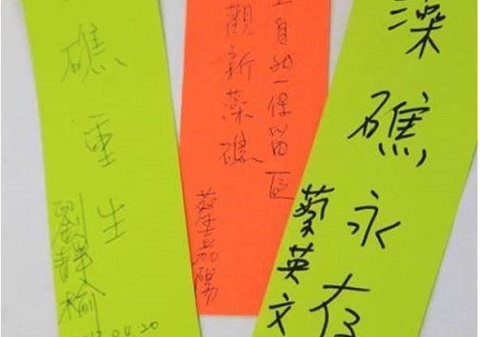 藻礁永存
蔡英文
自然保留區
觀新藻礁
蔡嘉陽
礁重生
劉靜榆
04.20